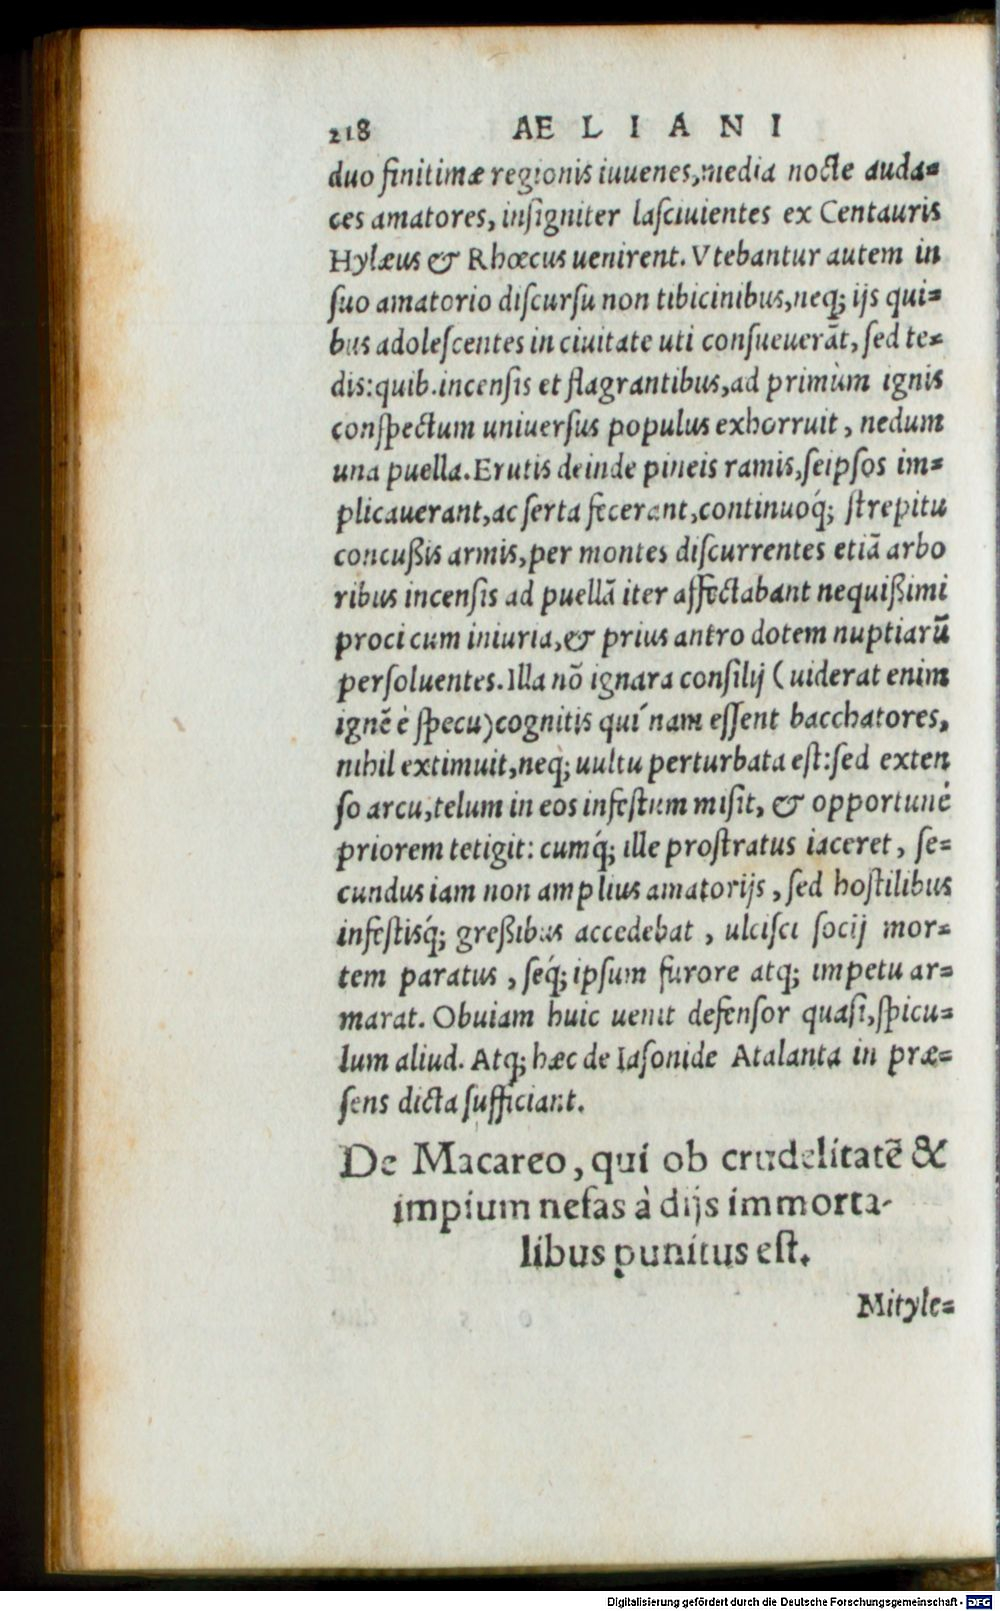 218 AE L I A N I
duo finitimæ regionis iuuenes, media nocte auda=
ces amatores, insigniter lasciuientes ex Centauris
Hylæus & Rhœcus uenirent. Vtebantur autem in
suo amatorio discursu non tibicinibus, neq; ijs qui=
bus adolescentes in ciuitate uti consueuerāt, sed te=
dis: quib. incensis et flagrantibus, ad primùm ignis
conspectum uniuersus populus exhorruit, nedum
una puella. Erutis deinde pineis ramis, seipsos im=
plicauerant, ac serta fecerant, continuoq́; strepitu
concußis armis, per montes discurrentes etiā arbo
ribus incensis ad puellā iter affectabant nequißimi
proci cum iniuria, & prius antro dotem nuptiarū
persoluentes. Illa nō ignara consilij (uiderat enim
ignē è specu) cognitis quí nam essent bacchatores,
nihil extimuit, neq; uultu perturbata est: sed exten
so arcu, telum in eos infestum misit, & opportunè
priorem tetigit: cumq́; ille prostratus iaceret, se=
cundus iam non amplius amatorijs, sed hostilibus
infestisq́; greßibus accedebat, ulcisci socij mor=
tem paratus, seq́; ipsum furore atq; impetu ar=
marat. Obuiam huic uenit defensor quasi, spicu=
lum aliud. Atq; hæc de Iasonide Atalanta in præ=
sens dicta sufficiant.
De Macareo, qui ob crudelitatē &
impium nefas à dijs immorta-
libus punitus est.
Mityle=
Digitalisierung gefördert durch die Deutsche Forschungsgemeinschaft - DFG